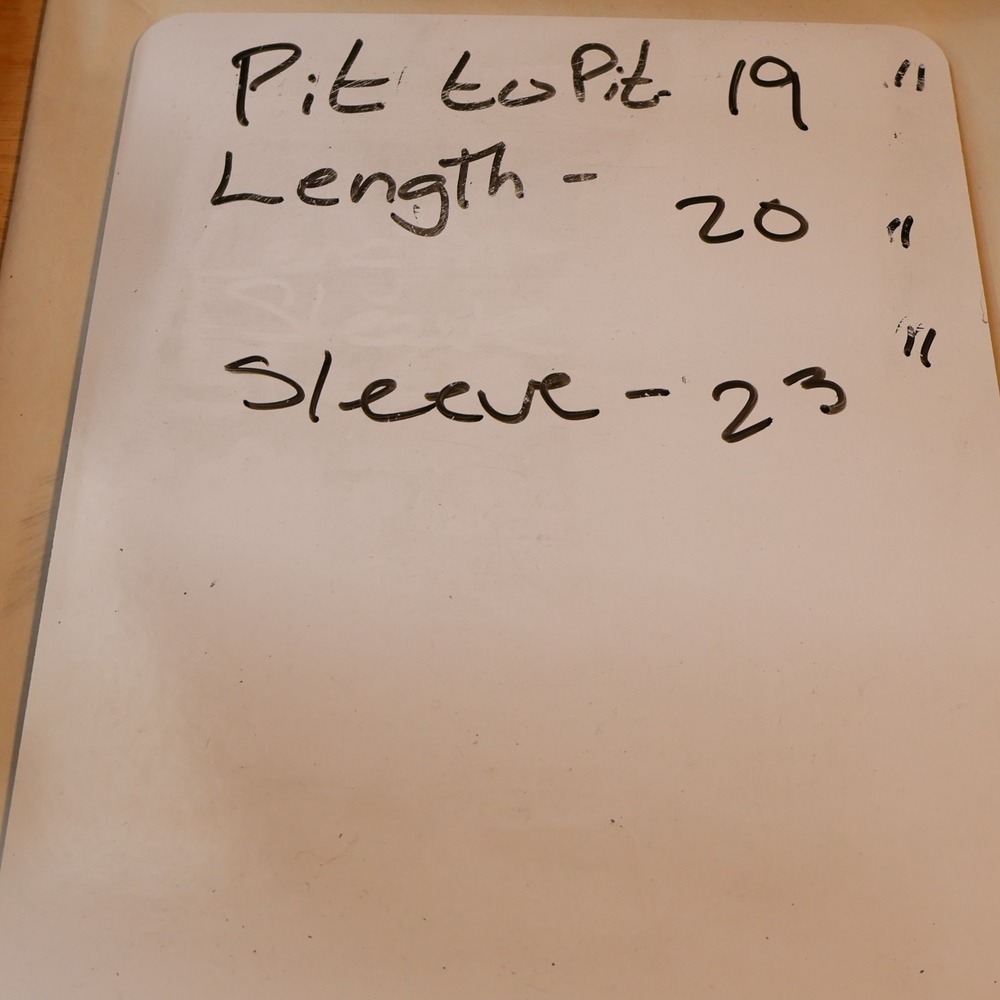 Pit to Pit 19 "
Length - 20 "
Sleeve - 23 "